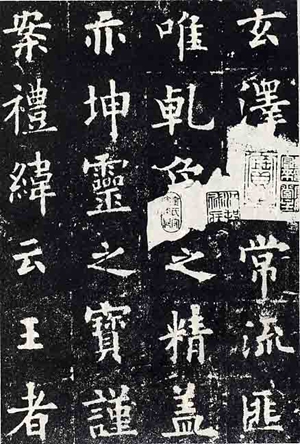 玄澤常流匪
唯乹之精盖
亦坤靈之寶謹
案禮緯云王者